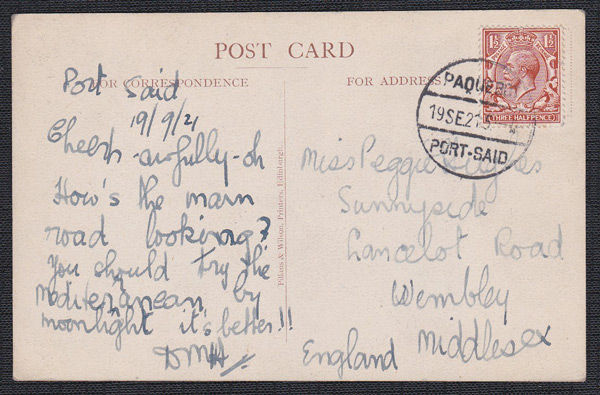 POST CARD
FOR CORRESPONDENCE
FOR ADDRESS
1½ 1½
THREE HALFPENCE
PAQUEBOT
19 SE 21
PORT-SAID
Port Said
19/9/21
Cheeroh-awfully-oh
How's the main
road looking?
You should try the
Mediteranean by
moonlight it's better!!
DMH
Miss Peggie
Sunnyside
Lancelot Road
Wembley
Middlesex
England
Printers, Edinburgh.